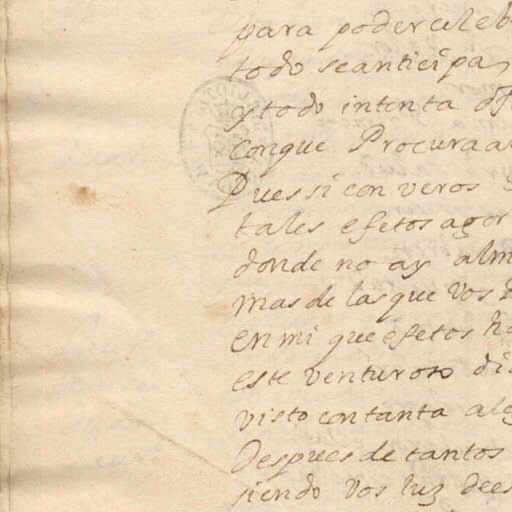 para poder celeb
todo se anticipa,
y todo intenta
conque Procura
Pues si con veros
tales efetos
donde no ay alm
mas de las que vos
en mi que efetos
este venturoso di
visto con tanta
Despues de tantos
siendo vos luz dees